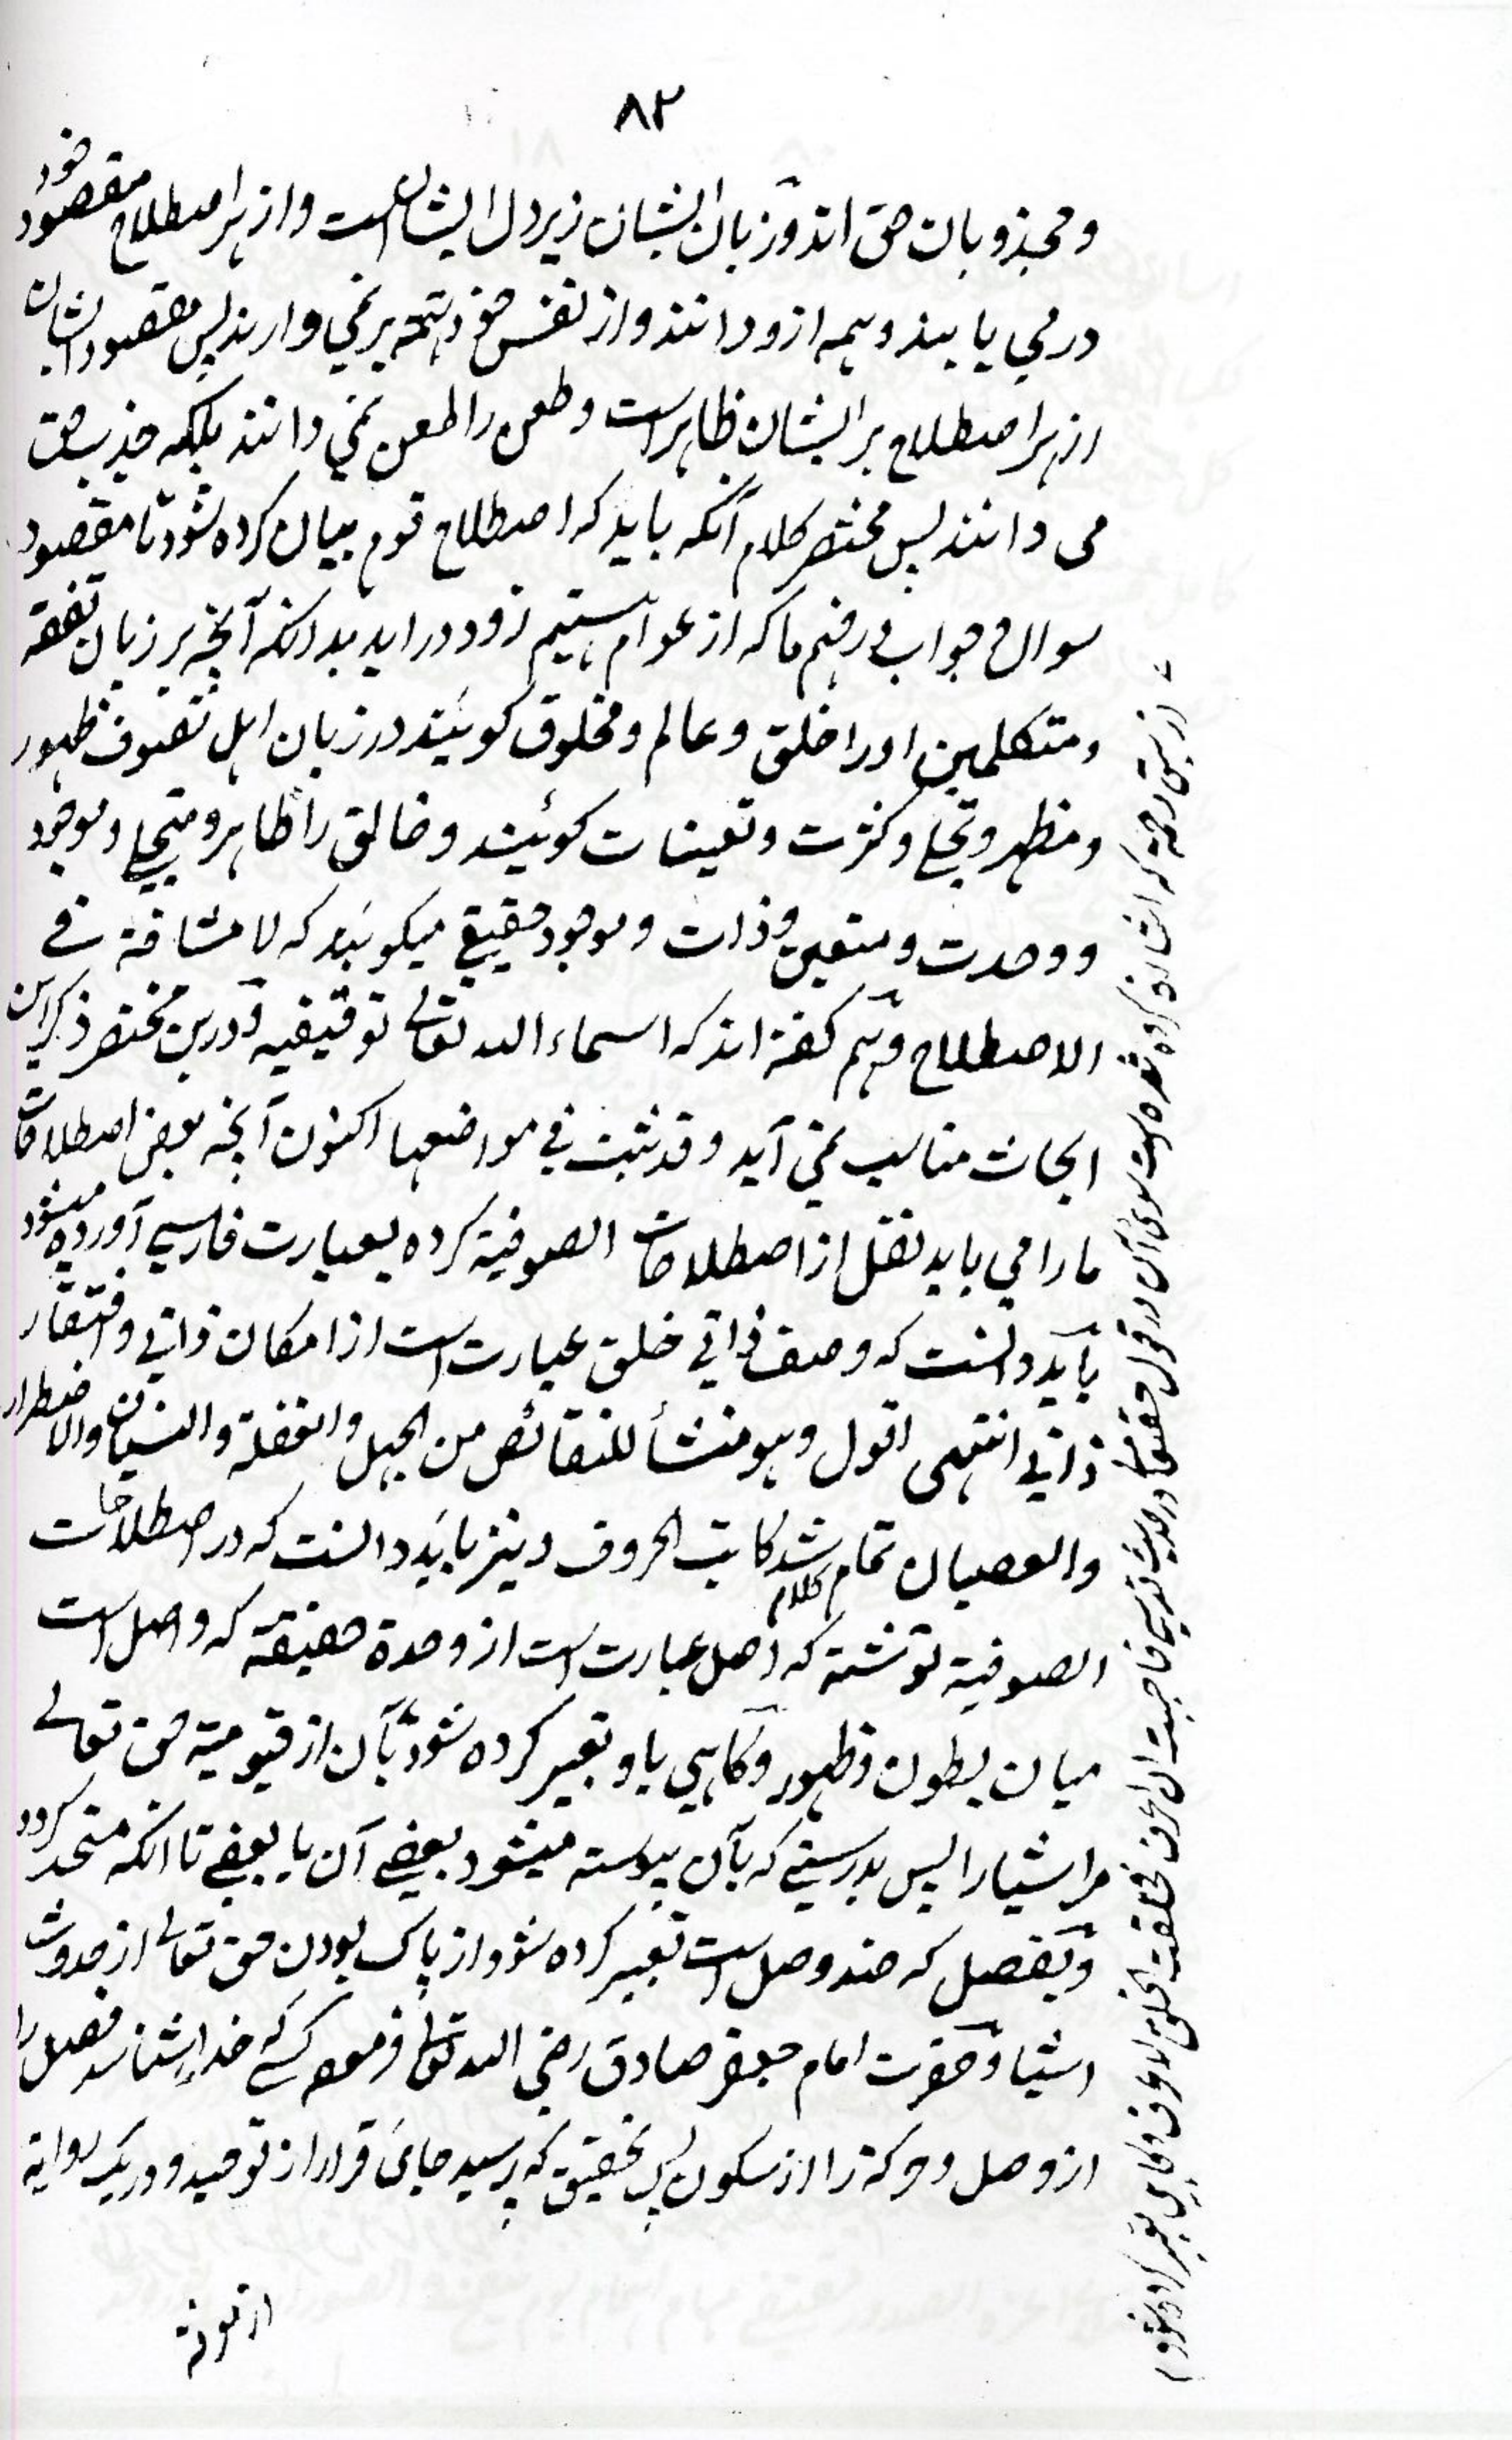 ۸۲
ومجذوبان حق اند وزبان ایشان زیر دل ایشان است واز هر اصطلاح مقصود خود
در می یابند وهمه ازو دانند واز نفس خود تهمة بر نمی دارند پس مقصود ایشان
از هر اصطلاح بر ایشان ظاهر است وطعن را طعن نمی دانند بلکه جذب حق
می دانند پس مختصر کلام آنکه باید که اصطلاح قوم بیان کرده شود تا مقصود
سوال وجواب در فهم ما که از عوام هستیم زود در اید بدانکه آنچه بر زبان تفقه
ومتکلمین اورا خلق وعالم ومخلوق کویند در زبان اهل تصوف ظهور
ومظهر وتجلی وکثرت وتعینات کوئیند وخالق را ظاهر ومتجلی وموجود
ووحدت ومتعین وذات وموجود حقیقی میکویند که لا مشاقة فی
الاصطلاح وهم کفته اند که اسماء الله تعالی توقیفیه ودرین مختصر ذکر این
ابحاث مناسب نمی آید وقد ثبت فی مواضعها اکنون آنچه بعض اصطلاحات
ما را می باید نقل از اصطلاحات الصوفیة کرده بعبارت فارسی آورده میشود
باید دانست که وصف ذاتی خلق عبارت است از امکان ذاتی وافتقار
ذاتی انتهی اقول وهو منشأ للنقائص من الجهل والغفلة والنسیان والاضطرار
والعصیان تمام شد کلام کاتب الحروف ونیز باید دانست که در اصطلاحات
الصوفیة نوشته که وصل عبارت است از وحدة حقیقة که واصل است
میان بطون وظهور وکاهی باو تعبیر کرده شود بآن از قیومیة حق تعالی
مر اشیارا پس بدرستی که بآن پیوسته میشود بعضی آن با بعضی تا انکه متحد کردد
وبفصل که ضد وصل است تعبیر کرده شود از پاک بودن حق تعالی از حدوث
اشیا وحضرت امام جعفر صادق رضی الله تعالی فرموده کسی خدا را شناسد فصل را
از وصل وحرکة را از سکون پس بتحقیق که برسید جای قرار از توحید ودر یک روایة
از معرفة